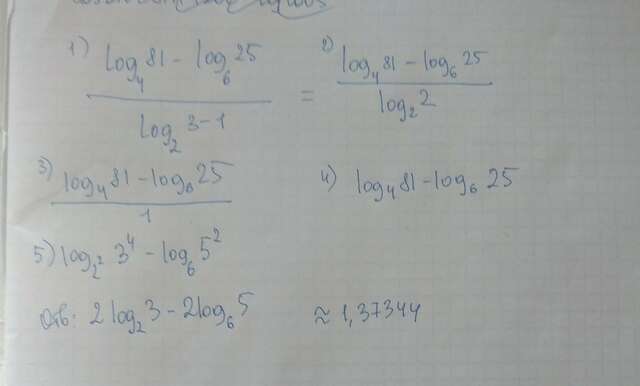 1) log₄81 - log₆25 / log₂3-1 = 2) log₄81 - log₆25 / log₂2
3) log₄81 - log₆25 / 1
4) log₄81 - log₆25
5) log₂²3⁴ - log₆5²
Отв: 2log₂3 - 2log₆5 ≈ 1,37344